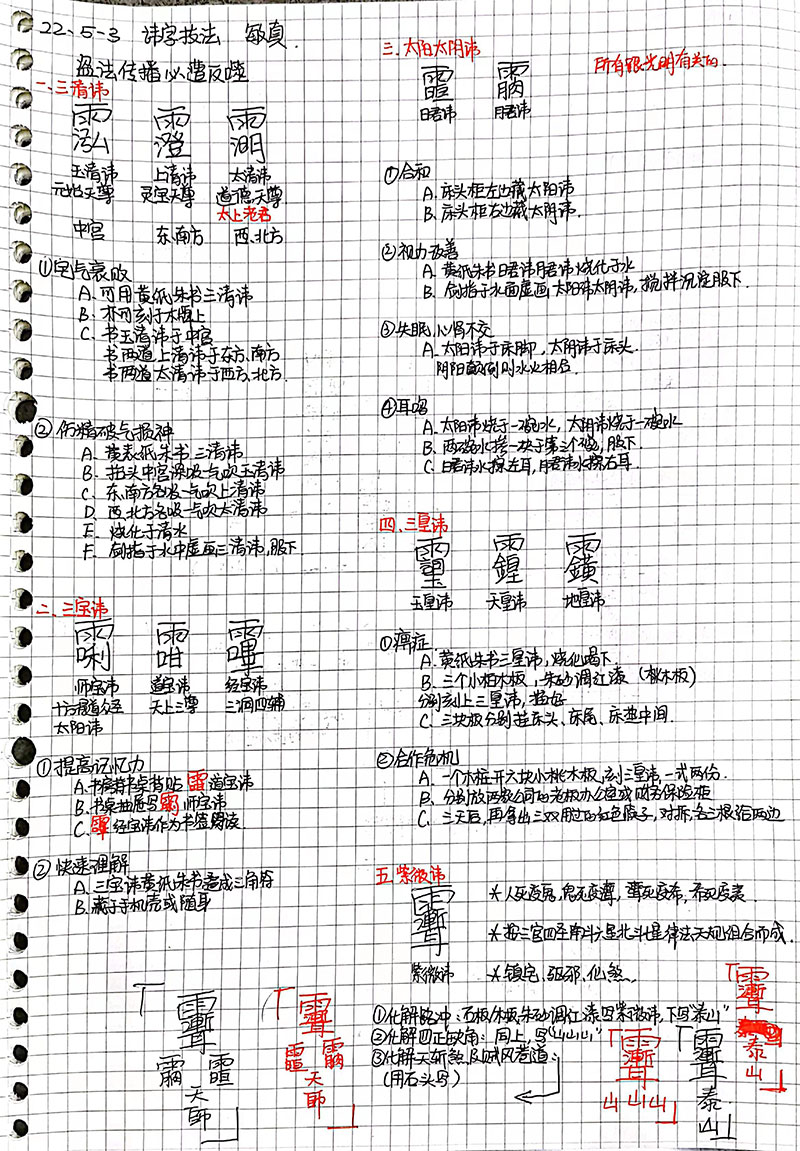 22.5-3 讳字技法
盗法传播必遭反噬
一.三清讳
玉清讳 上清讳 太清讳
元始天尊 灵宝天尊 道德天尊
太上老君
中宫 东、南方 西、北方
①宅气衰败
A. 可用黄纸朱书三清讳
B. 亦可刻于木版上
C. 书玉清讳于中宫
书两道上清讳于东方、南方
书两道太清讳于西方、北方.
② 伤精破气损神
A. 黄表纸朱书三清讳
B. 抬头中宫深吸一气吹玉清讳
C. 东、南方各吸一气吹上清讳
D. 西、北方各吸一气吹太清讳
E. 烧化于清水
F. 剑指于水中虚画三清讳,服下
二.三宝讳
师宝讳 道宝讳 经宝讳
天上三尊 三洞四辅
太阳讳
①提高记忆力
A.书房书桌背贴 道宝讳
B.书桌抽屉写 师宝讳
C. 经宝讳作为书签阅读.
② 快速理解
A. 三宝讳黄纸朱书叠成三角符
B. 藏于手机壳或随身
天師
天師
三.太阳太阴讳
所有跟光明有关的.
日君讳 月君讳
①合和
A. 床头柜左边藏太阳讳
B. 床头柜右边藏太阴讳.
②视力改善
A. 黄纸朱书日君讳月君讳烧化于水
B. 剑指于水面虚画太阳讳太阴讳,搅拌沉淀服下.
③失眠,心肾不交
A. 太阳讳于床脚,太阴讳于床头.
阴阳颠倒则水火相位.
④耳鸣
A. 太阳讳烧于一碗水,太阴讳烧于一碗水
B. 两碗水搭一块于第三个碗,服下.
C. 日君讳水擦左耳,月君讳水擦右耳.
四.三皇讳
玉皇讳 天皇讳 地皇讳
①癔症
A. 黄纸朱书三皇讳,烧化喝下
B. 三个小柏木板,朱砂调红漆(桃木板)
分别刻上三皇讳,描好
C. 三块放分别挂床头、床尾、床垫中间.
②合作危机
A. 一个木桩开六块小桃木板,刻三皇讳,一式两份.
B. 分别放两股公司的老板办公室或财务保险柜
C. 三天后,再拿出三双用过的红色筷子,对拆,各三根给两边
五.紫微讳
紫微讳
*人死变鬼,鬼死变聻,聻死变希,希死变夷.
*按三官四圣南斗六星北斗七星律法天规组合而成.
*镇宅、驱邪、化煞.
①化解路冲:石板/木板朱砂调红漆写紫微讳,下写"泰山"
②化解四正缺角:同上,写"山山山"
③化解天斩煞及贼风巷道:
(用石头写)
泰山
山山山
泰山